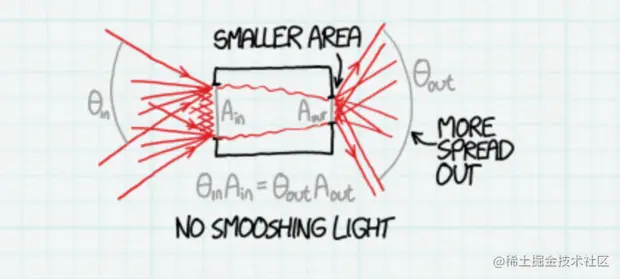 SMALLER AREA
θin
Ain
Aout
θout
MORE
SPREAD
OUT
θinAin = θoutAout
NO SMOOSHING LIGHT
@稀土掘金技术社区